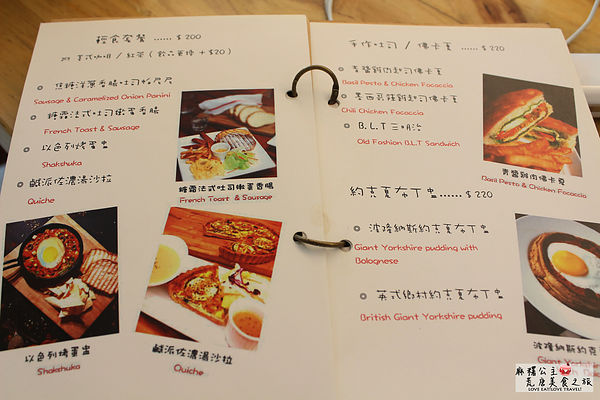 輕食套餐 ...... $ 200
附 美式咖啡 / 紅茶 ( 飲品更換 + $20 )
焦糖洋蔥香腸吐司帕尼尼
Sausage & Caramelized Onion Panini
糖霜法式吐司嫩蛋香腸
French Toast & Sausage
以色列烤蛋盅
Shakshuka
鹹派佐濃湯沙拉
Quiche
糖霜法式吐司嫩蛋香腸
French Toast & Sausage
以色列烤蛋盅
Shakshuka
鹹派佐濃湯沙拉
Quiche
手作吐司 / 佛卡夏 ...... $ 220
青醬雞肉起司佛卡夏
Basil Pesto & Chicken Focaccia
墨西哥辣雞起司佛卡夏
Chili Chicken Focaccia
B.L.T 三明治
Old Fashion B.L.T Sandwich
青醬雞肉佛卡夏
Basil Pesto & Chicken Focaccia
約克夏布丁盅 ...... $ 220
波隆納斯約克夏布丁盅
Giant Yorkshire pudding with
Bolognese
英式鄉村約克夏布丁盅
British Giant Yorkshire pudding
波隆納斯約克
Giant York
麻糬公主
荒唐美食之旅
LOVE EAT!LOVE TRAVEL!